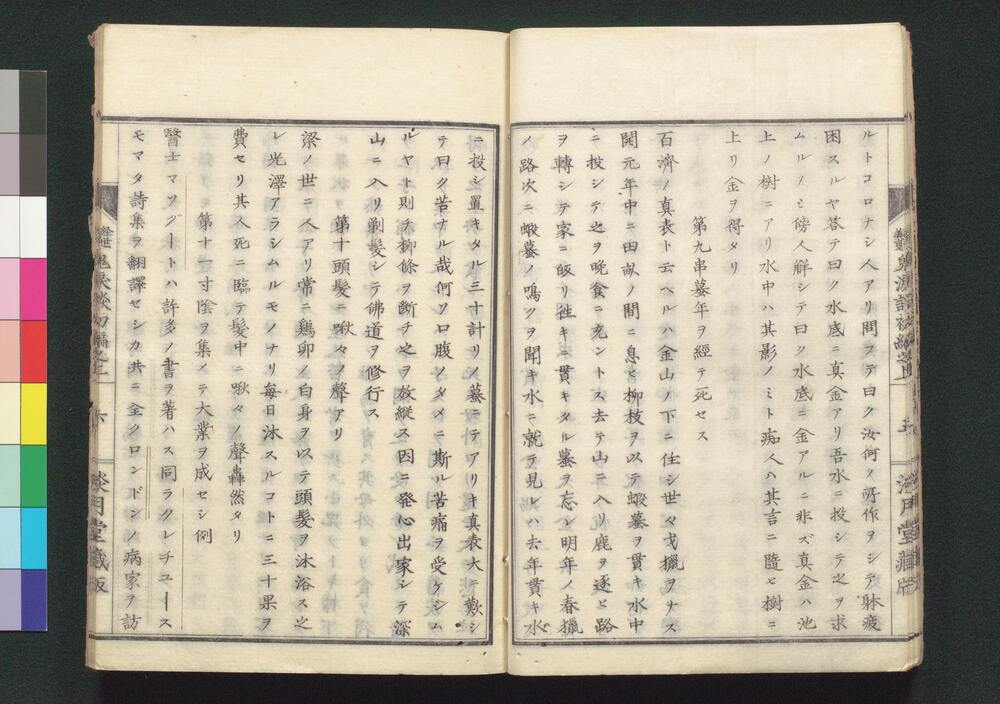 ルトコロナシ人アリ問フテ曰ク汝何ヲ所作ヲシテ躰疲
困スルヤ答テ曰ク水底ニ真金アリ吾水ニ投シテ之ヲ求
ムルノミ傍人解シテ曰ク水底ニ金アルニ非ズ真金ハ池
上ノ樹ニアリ水中ハ其影ノミト痴人ハ其言ニ隨ヒ樹ニ
上リ金ヲ得タリ
第九串蟇年ヲ經テ死セス
百濟ノ真表ト云ヘルハ金山ノ下ニ住シ世々弋獵ヲナス
開元年中ニ田畝ノ間ニ息ヒ柳枝ヲ以テ蝦蟇ヲ貫キ水中
ニ投シテ之ヲ晩食ニ充ントス去テ山ニ入リ鹿ヲ逐ヒ路
ヲ轉シテ家ニ皈リ徃キニ貫キタル蟇ヲ忘レ明年ノ春獵
ノ路次ニ蝦蟇ノ鳴クヲ聞キ水ニ就テ見レハ去年貫キ水
五
ニ投シ置キタル三十計リノ蟇ニテアリキ真表大ニ歎シ
テ曰ク苦ナル哉何ソ口腹ノタメニ斯ル苦痛ヲ受ケシム
ルヤト則チ柳條ヲ断チ之ヲ放縦ス因ニ発心出家シテ深
山ニ入リ剃髪シテ佛道ヲ修行ス
第十頭髪ニ啾々ノ聲アリ
梁ノ世ニ人アリ常ニ鶏卵ノ白身ヲ以テ頭髪ヲ沐浴ス之
レ光澤アラシムルモノナリ毎日沐スルコトニ三十果ヲ
費セリ其人死ニ臨テ髪中ニ啾々ノ聲轟然タリ
第十一寸陰ヲ集メテ大業ヲ成セシ例
醫士マソングートハ許多ノ書ヲ著ハス同ラクレチユース
モマタ詩集ヲ翻譯セシカ共ニ全クロンドンノ病家ヲ訪
六